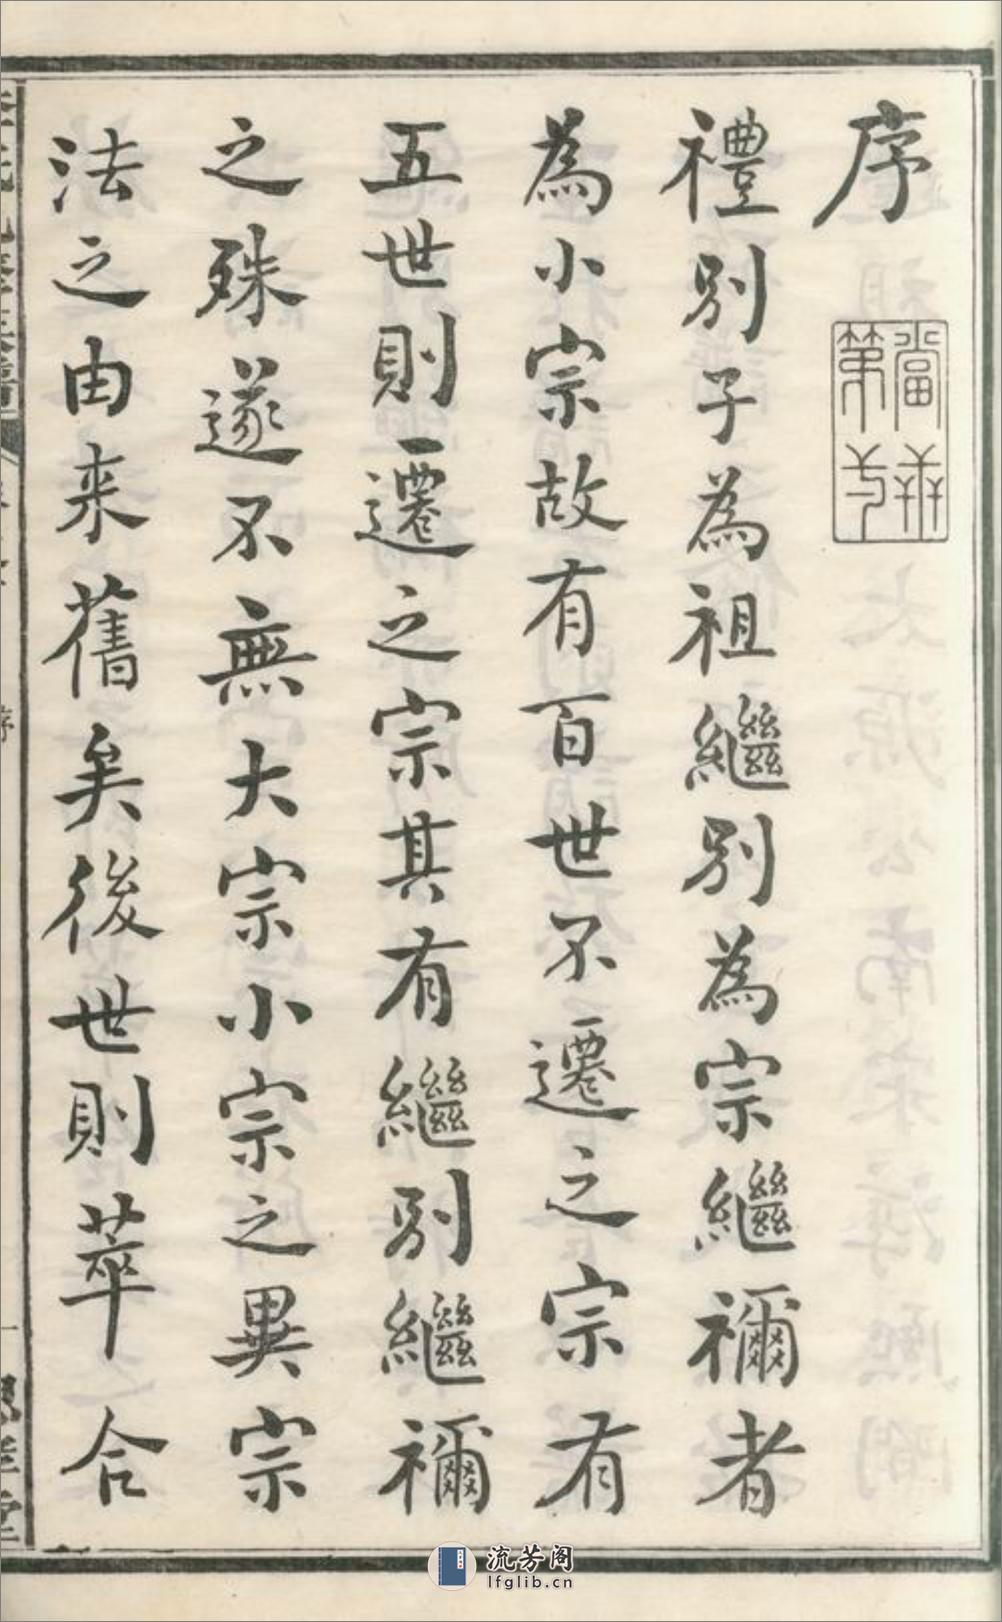 序
禮別子為祖繼別為宗繼禰者
為小宗故有百世不遷之宗有
五世則遷之宗其有繼別繼禰
之殊遂不無大宗小宗之異宗
法之由来舊矣後世則萃合
流芳阁
lfglib.cn